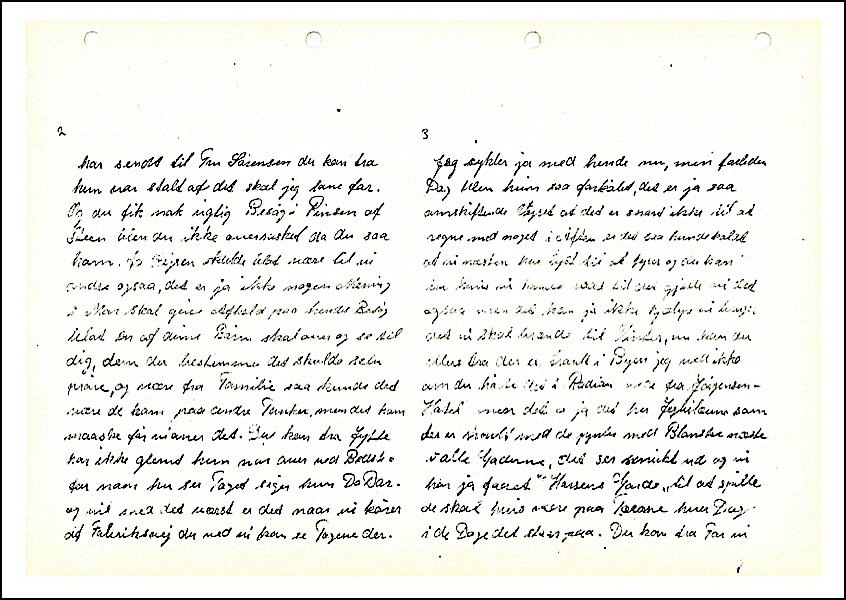 2
har sendt til Fru Sørensen du kan tro
hun var stolt af det skal jeg love for.
Og du fik nok rigtig Besøg i Pinsen af
blev du ikke overrasket da du saa
ham. Ja Rejsen skulde blot være til vi
andre ogsaa, det er ja ikke nogen Mening
i Mor skal give Afkald paa hendes Besøg
blot en af dine Børn skal over og se til
dig, dem der bestemmer det skulde selv
prøve, og være fra Familie saa kunde det
være de kom paa andre Tanker, men det kan
maaske før vi aner det. Du kan tro Jytte
har ikke glemt hun var over ved Bedste-
far naar hu ser Toget siger hun Da Dar-
og vil med det værst er det naar vi kører
ad Fabriksvej der ved vi kan se Togene der.
3
Jeg cykler ja med hende nu, min forleden
Dag blev hun saa forkølet, det er ja saa
omskiftende Vejret at det er snart ikke til at
regne med noget i Aften er det saa hunde koldt
at vi næsten har Lyst til at fyre og du kan
hvis vi havde raad til det gjorde vi det
ogsaa men det kan ja ikke hjælpe vi bruger
det vi skal brænde til Vinter, nu kan du
ellers tro der er travlt i Byen jeg ved ikke
om du hørte det i Radioen fra Jørgensen-
Hotel men det er ja det her Jubilæum som
der er travlt med de pynter med Blomster næste
alle Gaderne, det ser smukt ud og vi
har ja faaet "Hossens Garde" til at spille
de skal hvis være paa Torvene hver Dag
i de Dage det staar paa. Du kan tro Far vi